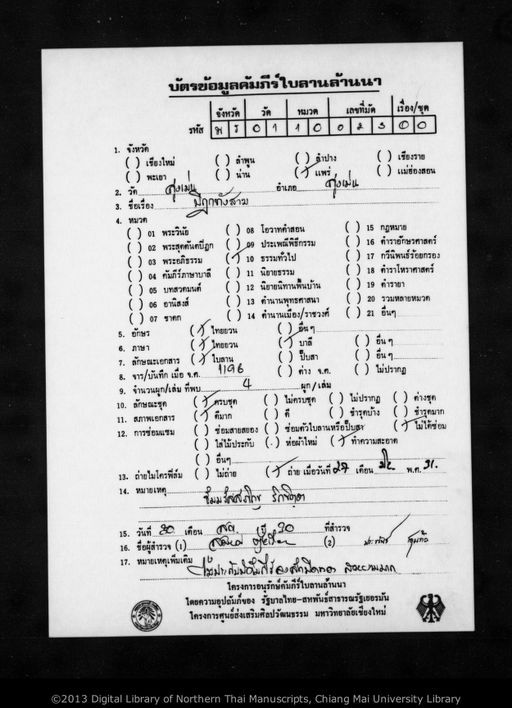 บัตรข้อมูลคัมภีร์ใบลานล้านนา
จังหวัด วัด หมวด เลขที่มัด เรื่อง/ชุด
รหัส พ ร 0 1 1 0 0 2 3 0 0
1. จังหวัด
( ) เชียงใหม่ ( ) ลำพูน ( ) ลำปาง ( ) เชียงราย
( ) พะเยา ( ) น่าน (/) แพร่ ( ) แม่ฮ่องสอน
2. วัด สูงเม่น อำเภอ สูงเม่น
3. ชื่อเรื่อง ปิฎกทังสาม
4. หมวด
( ) 01 พระวินัย ( ) 08 โอวาทคำสอน ( ) 15 กฎหมาย
( ) 02 พระสุตตันตปิฎก ( ) 09 ประเพณีพิธีกรรม ( ) 16 ตำราอักษรศาสตร์
( ) 03 พระอภิธรรม (/) 10 ธรรมทั่วไป ( ) 17 กวีนิพนธ์ร้อยกรอง
( ) 04 คัมภีร์ภาษาบาลี ( ) 11 นิยายธรรม ( ) 18 ตำราโหราศาสตร์
( ) 05 บทสวดมนต์ ( ) 12 นิยายนิทานพื้นบ้าน ( ) 19 ตำรายา
( ) 06 อานิสงส์ ( ) 13 ตำนานพุทธศาสนา ( ) 20 รวมหลายหมวด
( ) 07 ชาดก ( ) 14 ตำนานเมือง/ราชวงศ์ ( ) 21 อื่นๆ
5. อักษร (/) ไทยยวน ( ) อื่นๆ
6. ภาษา (/) ไทยยวน (/) บาลี ( ) อื่นๆ
7. ลักษณะเอกสาร (/) ใบลาน ( ) ปั๊บสา ( ) อื่นๆ
8. จาร/บันทึก เมื่อ จ.ศ. 1196 ( ) ต่าง จ.ศ. ( ) ไม่ปรากฏ
9. จำนวนผูก/เล่ม ที่พบ 4 ผูก/เล่ม
10. ลักษณะชุด (/) ครบชุด ( ) ไม่ครบชุด ( ) ไม่ปรากฏ ( ) ต่างชุด
11. สภาพเอกสาร (/) ดีมาก ( ) ดี ( ) ชำรุดบ้าง ( ) ชำรุดมาก
12. การซ่อมแซม ( ) ซ่อมสายสยอง ( ) ซ่อมตัวใบลานหรือปั๊บสา (/) ไม่ได้ซ่อม
( ) ใส่ไม้ประกับ ( ) ห่อผ้าใหม่ (/) ทำความสะอาด
( ) อื่นๆ
13. ถ่ายไมโครฟิล์ม ( ) ไม่ถ่าย (/) ถ่าย เมื่อวันที่ 27 เดือน พ.ศ. 31.
14. หมายเหตุ
15. วันที่ 20 เดือน ปี 30 ที่สำรวจ
16. ชื่อผู้สำรวจ (1) (2)
17. หมายเหตุเพิ่มเติม
โครงการอนุรักษ์คัมภีร์ใบลานล้านนา
โดยความอุปถัมภ์ของ รัฐบาลไทย-สหพันธ์สาธารณรัฐเยอรมัน
โครงการศูนย์ส่งเสริมศิลปวัฒนธรรม มหาวิทยาลัยเชียงใหม่
©2013 Digital Library of Northern Thai Manuscripts, Chiang Mai University Library